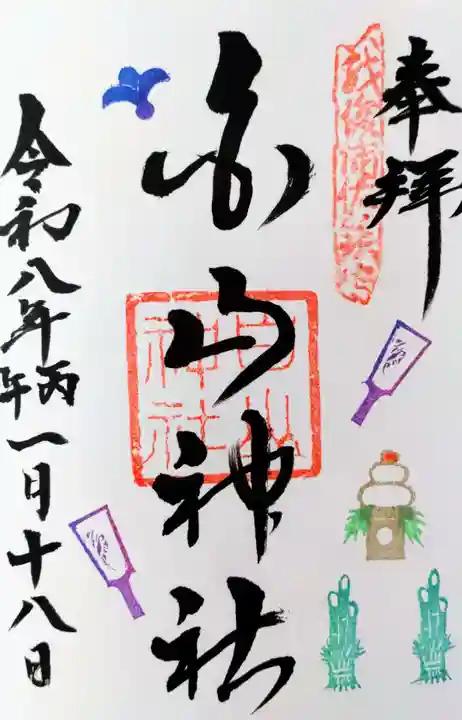 奉拝
越後浦佐
白山神社
白山
神社
令和八年丙午一月十八日